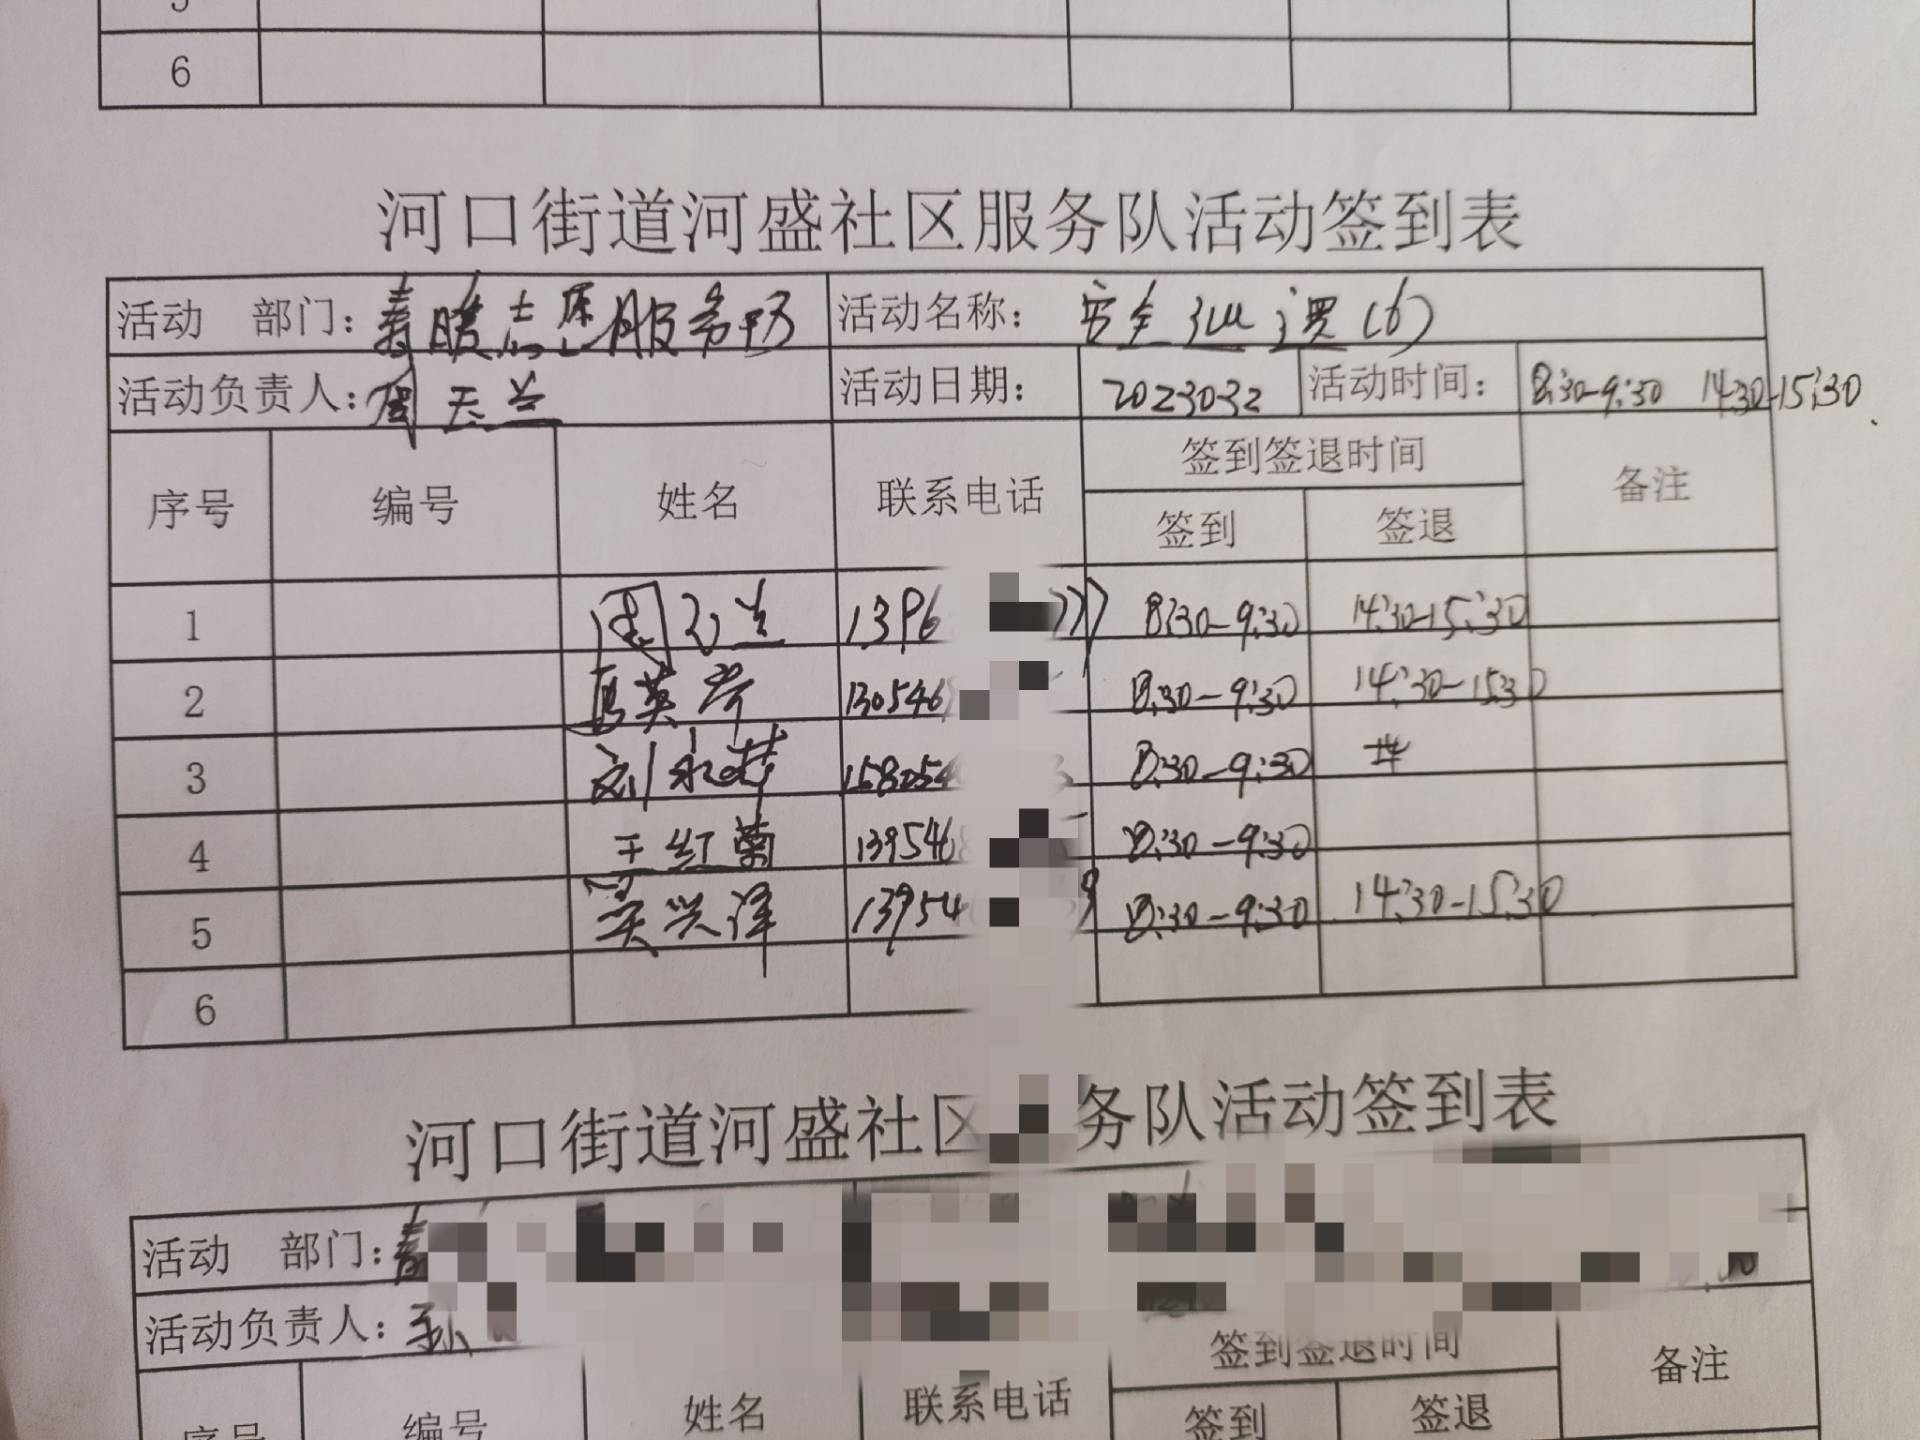 6
河口街道河盛社区服务队活动签到表
活动 部门：春暖志愿服务队 活动名称：安全巡逻(6)
活动负责人：周玉兰 活动日期：2023032 活动时间：8:30-9:30 14:30-15:30
序号 编号 姓名 联系电话 签到签退时间 备注
签到 签退
1 周玉兰 1396 777 8:30-9:30 14:30-15:30
2 英 130546 8:30-9:30 14:30-1530
3 刘永 158054 8:30-9:30
4 王红菊 139546 8:30-9:30
5 吴兴泽 13954 9 8:30-9:30 14:30-15:30
6
河口街道河盛社区 务队活动签到表
活动 部门：春
活动负责人：孙
签到签退时间 备注
序号 编号 姓名 联系电话 签到 签退